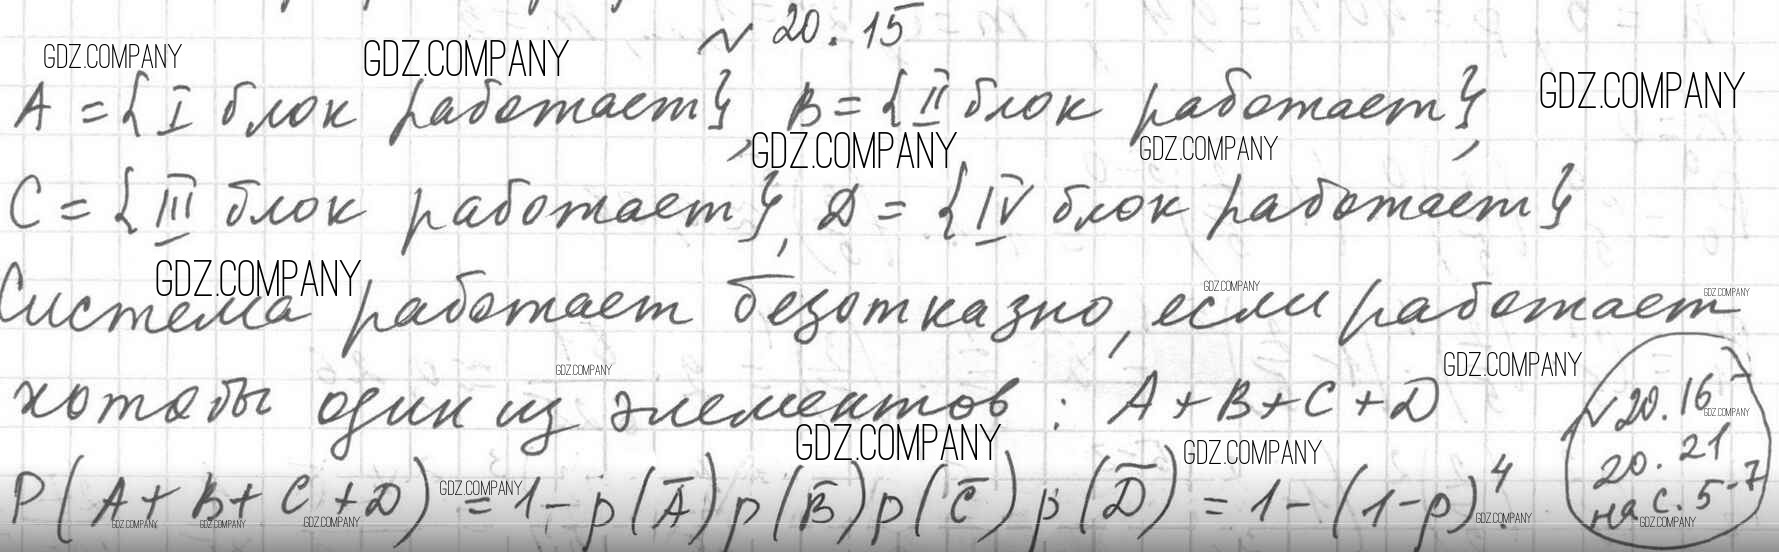 № 20.15
GDZ.COMPANY GDZ.COMPANY GDZ.COMPANY
A = {I блок работает}, B = {II блок работает},
GDZ.COMPANY GDZ.COMPANY
C = {III блок работает}, D = {IV блок работает}
GDZ.COMPANY GDZ.COMPANY GDZ.COMPANY
Система работает безотказно, если работает
GDZ.COMPANY GDZ.COMPANY
хотя бы один из элементов: A + B + C + D
GDZ.COMPANY GDZ.COMPANY GDZ.COMPANY
P(A + B + C + D) = 1 - p(A̅) p(B̅) p(C̅) p(D̅) = 1 - (1 - p)⁴.
GDZ.COMPANY GDZ.COMPANY GDZ.COMPANY GDZ.COMPANY GDZ.COMPANY GDZ.COMPANY
№ 20.16 -
20.21
на с. 5-7